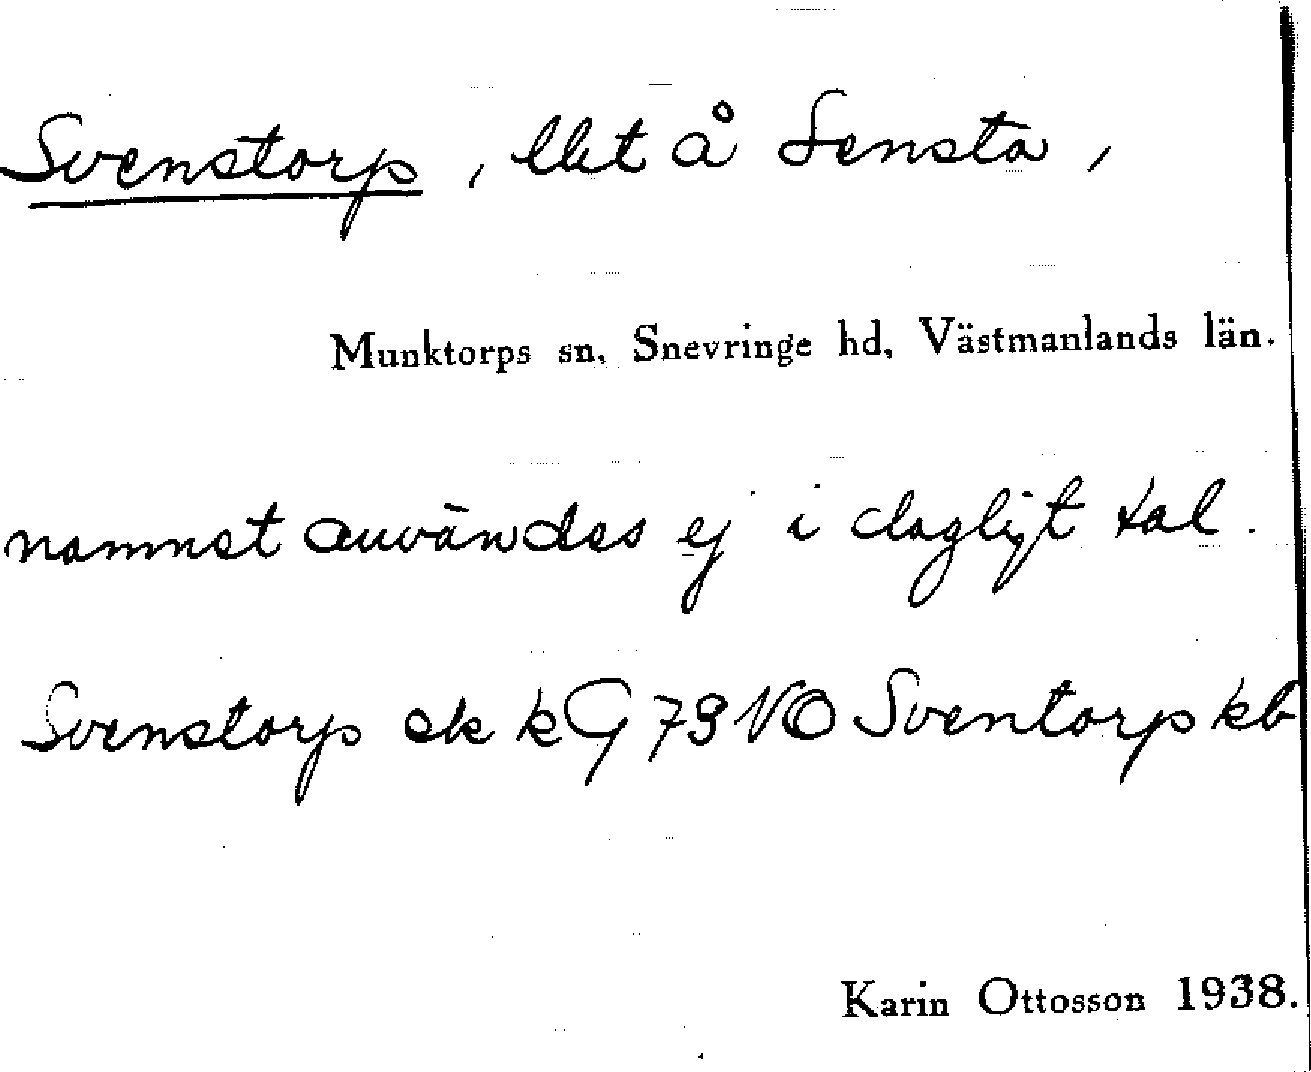 Svenstorp, lht å Sensta,
Munktorps sn, Snevringe hd, Västmanlands län.
namnet användes ej i dagligt tal.
Svenstorp ek k G 79 NO Sventorp kb
Karin Ottosson 1938.